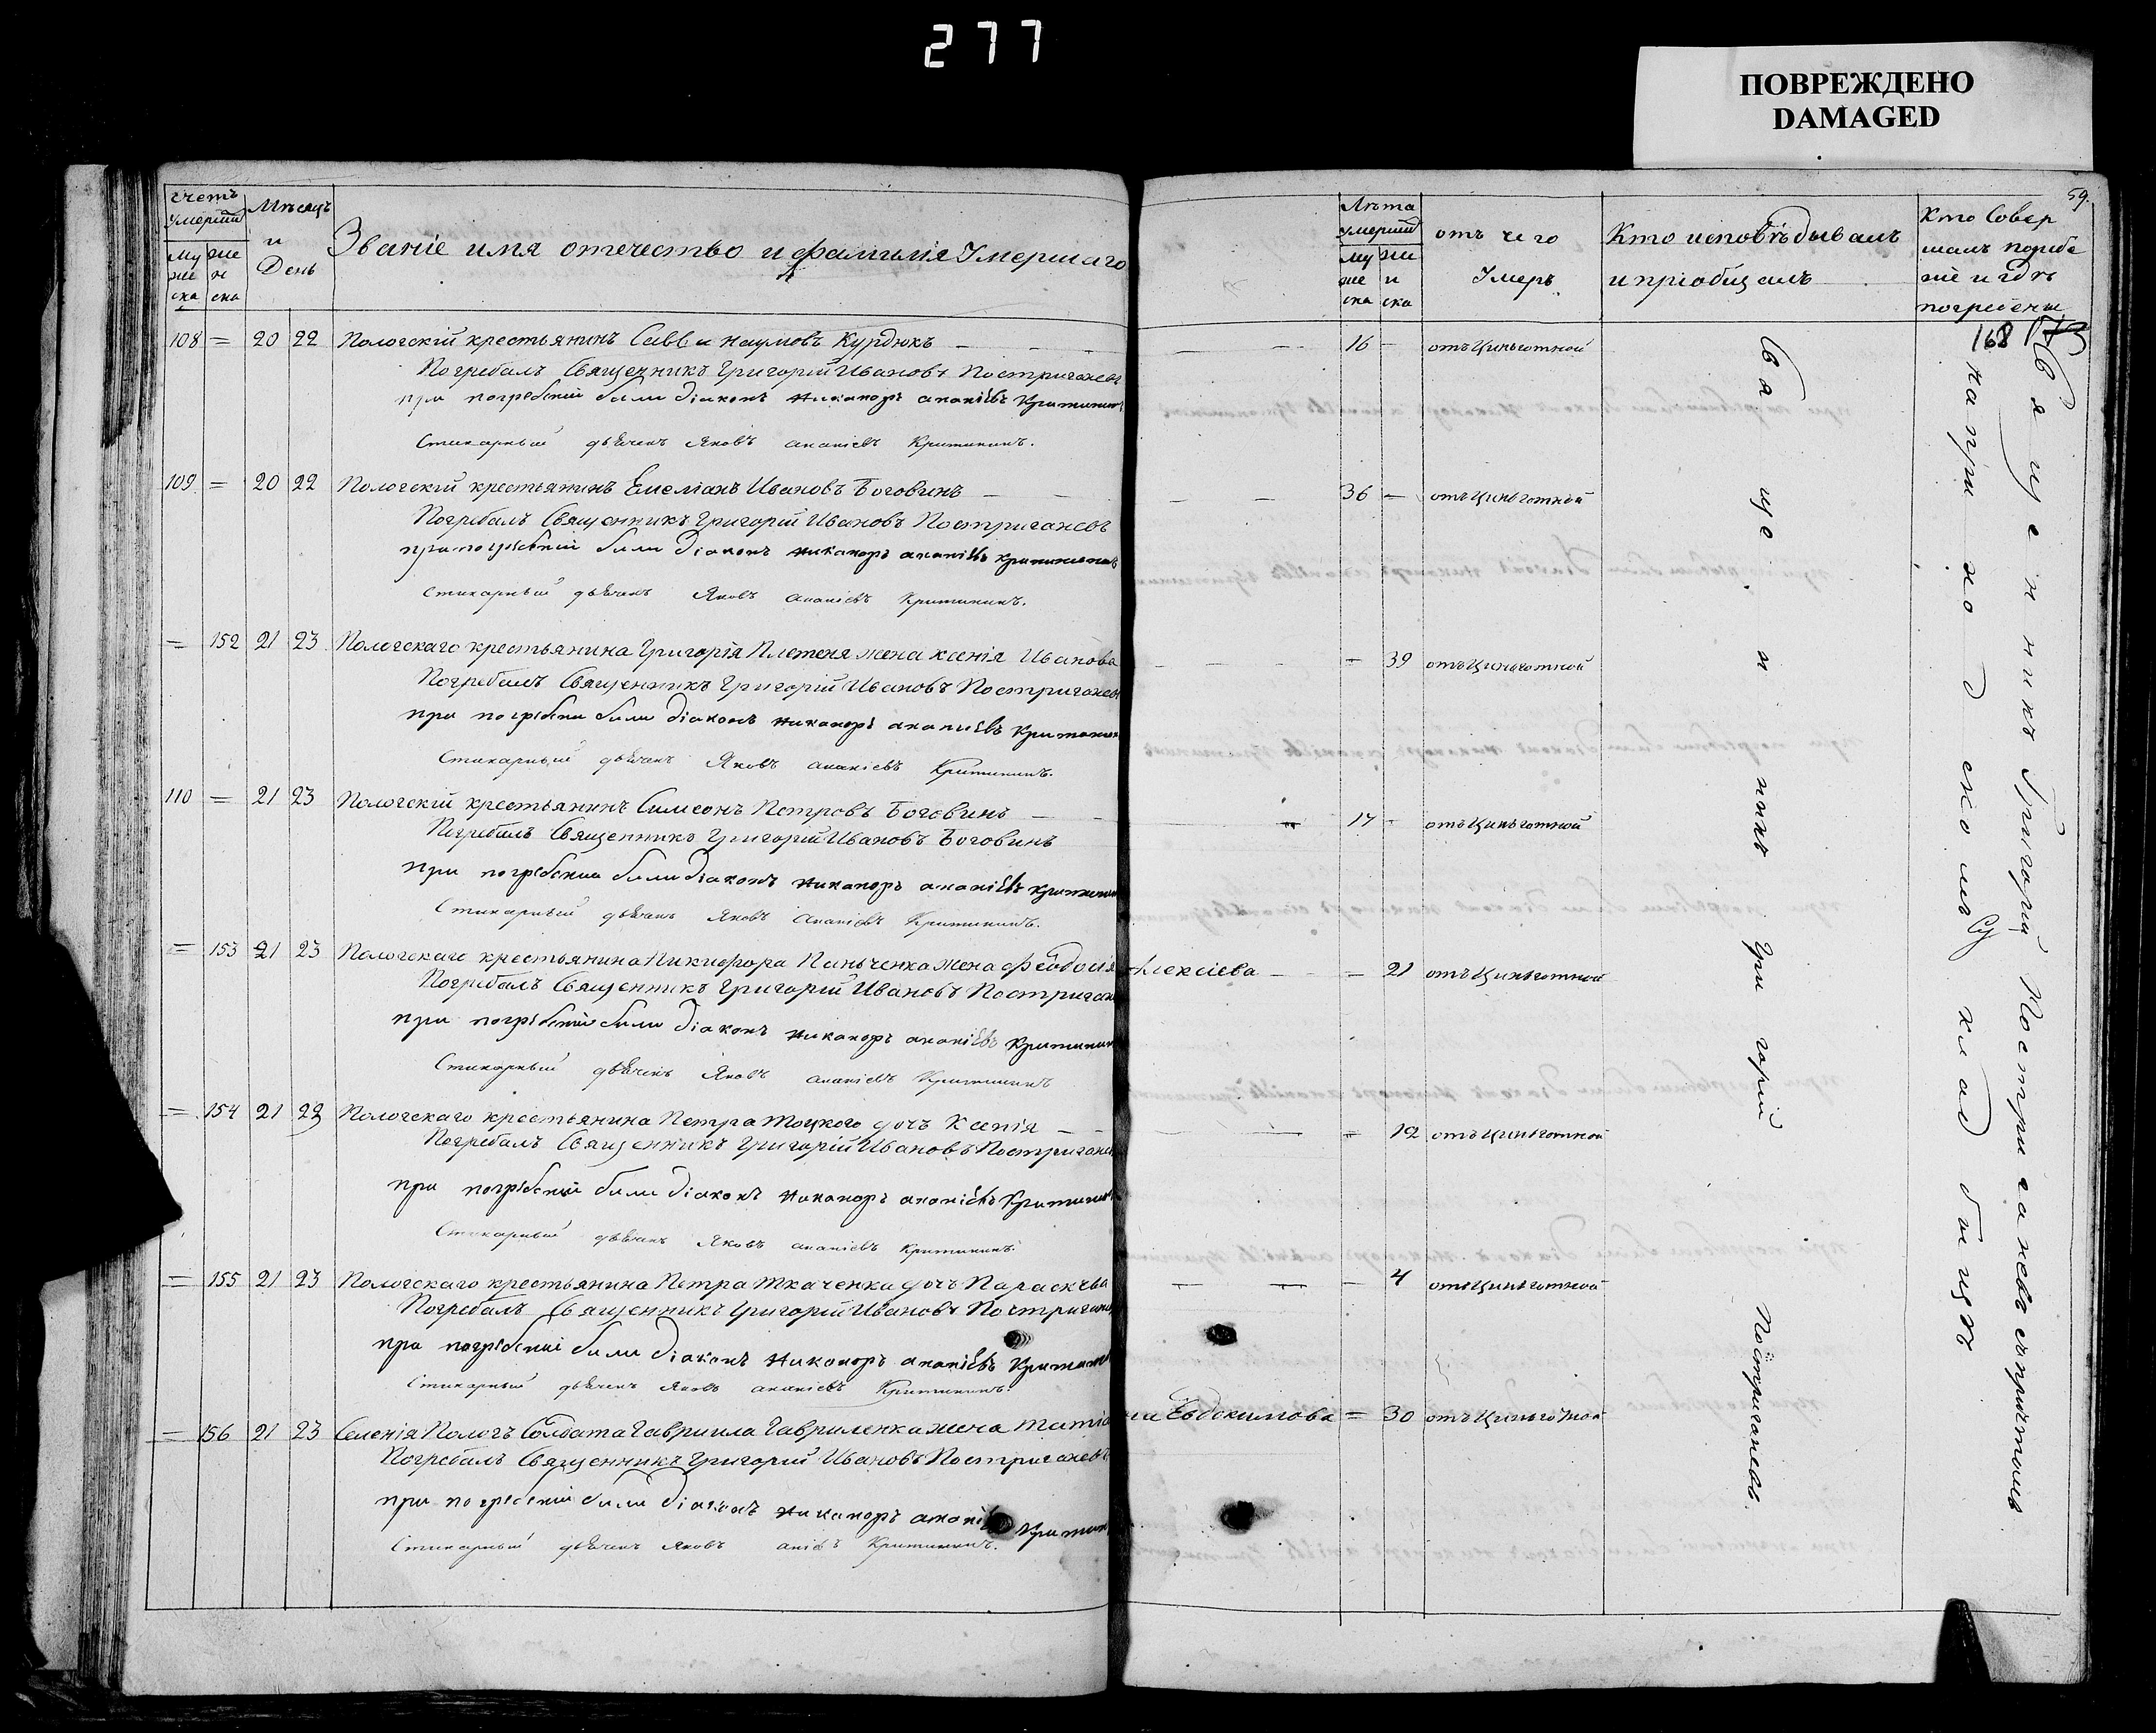 277
ПОВРЕЖДЕНО
DAMAGED
59.
Счетъ умерши
Муже ска
Жен ска
Мѣсяцъ и День
Званіе имя отечество и фамилія Умершаго
Лѣта умерши
Муже ска
Жен ска
отъ чего Умеръ
Кто исповѣдывалъ и пріобщалъ
Кто Совер шалъ погребе ніе и гдѣ погребены
168
108 = 20 22 Пологскій крестьянинъ Савва Наумовъ Курдюкъ — 16 — отъ Цынготной
Погребалъ Священникъ Григорій Ивановъ Постриганевъ
при погребеніи были Діаконъ Никаноръ Ананіевъ Критининъ
Стихарный дьячекъ Яковъ Ананіевъ Критининъ.
109 = 20 22 Пологскій крестьянинъ Емеліанъ Ивановъ Боговинъ — 36 — отъ Цынготной
Погребалъ Священникъ Григорій Ивановъ Постриганевъ
при погребеніи были Діаконъ Никаноръ Ананіевъ
Стихарный дьячекъ Яковъ Ананіевъ Критининъ.
= 152 21 23 Пологскаго крестьянина Григорія Плетеня жена Ксенія Иванова — = 39 отъ Цынготной
Погребалъ Священникъ Григорій Ивановъ Постриганевъ
при погребени были Діаконъ Никаноръ Ананіевъ Критининъ
Стихарный дьячекъ Яковъ Ананіевъ Критининъ.
110 = 21 23 Пологскій крестьянинъ Симеонъ Петровъ Боговинъ — 17 — отъ Цынготной
Погребалъ Священникъ Григорій Ивановъ Боговинъ
при погребении были Діаконъ Никаноръ Ананіевъ Критининъ
Стихарный дьячекъ Яковъ Ананіевъ Критининъ.
= 153 21 23 Пологскаго крестьянина Никифора Паньченка жена Феодосія Алексіева — = 21 отъ Цынготной
Погребалъ Священникъ Григорій Ивановъ Постриган
при погребеніи были Діаконъ Никаноръ Ананіевъ Критинин
Стихарный дьячекъ Яковъ Ананіевъ Критининъ
= 154 21 23 Пологскаго крестьянина Петра Тоцкого дочь Ксенія — = 12 отъ Цынготной
Погребалъ Священникъ Григорій Ивановъ Постриганев
при погребеніи были Діаконъ Никаноръ Ананіевъ Критинин
Стихарный дьячекъ Яковъ Ананіевъ Критининъ.
= 155 21 23 Пологскаго крестьянина Петра Ткаченка дочь Параскева — — 4 отъ Цынготной
Погребалъ Священникъ Григорій Ивановъ Постриган
при погребеніи были Діаконъ Никаноръ Ананіевъ Критинин
Стихарный дьячекъ Яковъ Ананіевъ Критининъ.
= 156 21 23 Селенія Пологъ Солдата Гавриила Гавриленка жена Татіана Евдокимова = 30 отъ Цынготной
Погребалъ Священникъ Григорій Ивановъ Постриганевъ
при погребеніи были Діаконъ Никаноръ Критин
Стихарный дьячекъ Яковъ Критининъ.
Священникъ Григорій Постриганевъ
Священникъ Григорій Постриганевъ съ причтомъ
на приходскомъ кладбищѣ